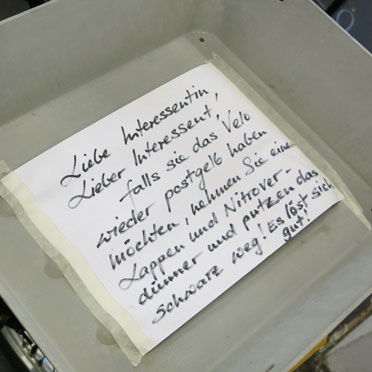 Liebe Interessentin,
Lieber Interessent,
falls sie das Velo
wieder postgelb haben
möchten, nehmen Sie eine
Lappen und Nitrover-
dünner und putzen das
schwarz weg! Es löst sich
gut!